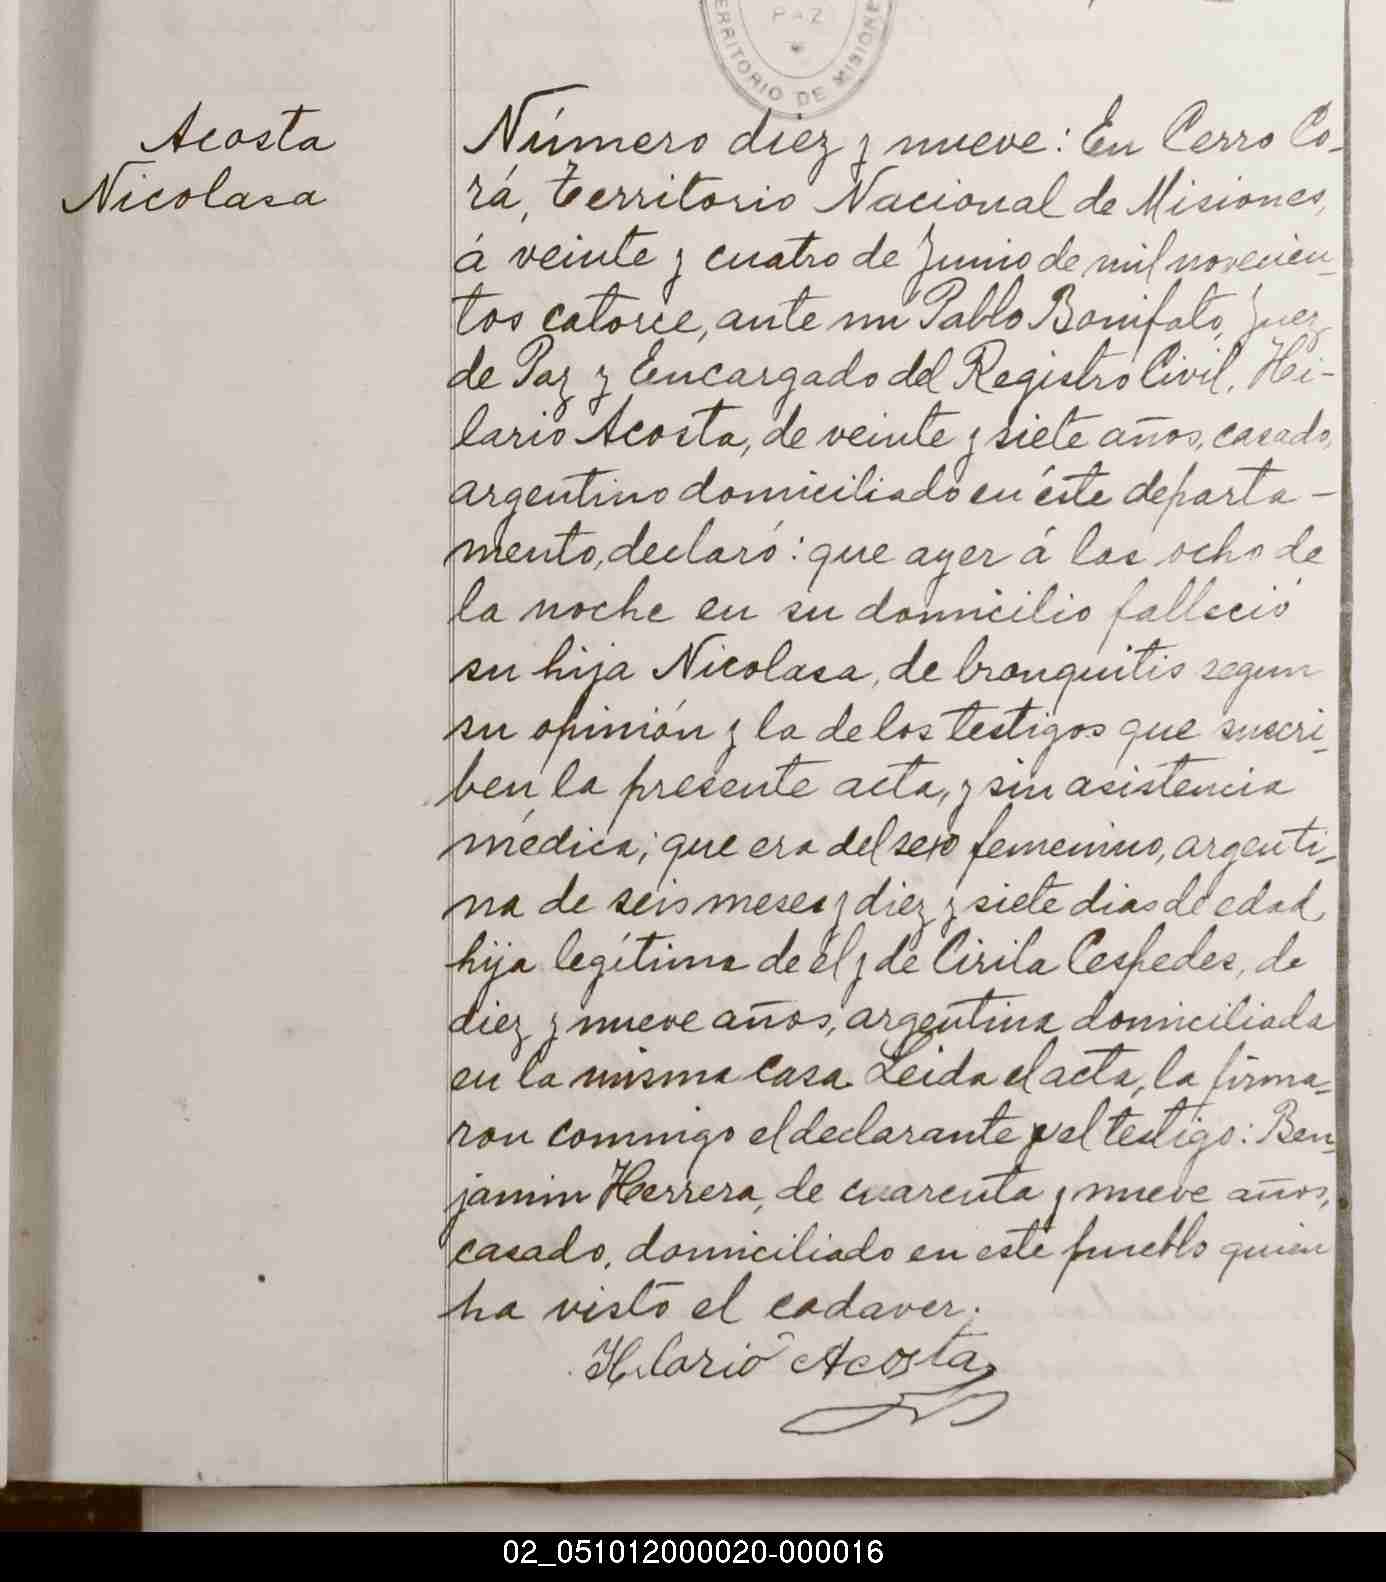 PAZ
TERRITORIO DE MISIONES
Acosta
Nicolasa
Número diez y nueve: En Cerro Co-
rá, territorio Nacional de Misiones,
á veinte y cuatro de Junio de mil novecien-
tos catorce, ante mí Pablo Bonifato, Juez
de Paz y Encargado del Registro Civil, Hi-
lario Acosta, de veinte y siete años, casado,
argentino domiciliado en éste departa-
mento, declaró: que ayer á las ocho de
la noche en su domicilio falleció
su hija Nicolasa, de bronquitis segun
su opinión y la de los testigos que suscri-
ben la presente acta, y sin asistencia
médica; que era del sexo femenino, argenti-
na de seis meses y diez y siete dias de edad,
hija legítima de él y de Cirila Cespedes, de
diez y nueve años, argentina domiciliada
en la misma casa. Leida el acta, la firma-
ron conmigo el declarante y el testigo: Ben-
jamin Herrera, de cuarenta y nueve años,
casado, domiciliado en este pueblo quien
ha visto el cadaver.
Hilario Acosta
02_051012000020-000016